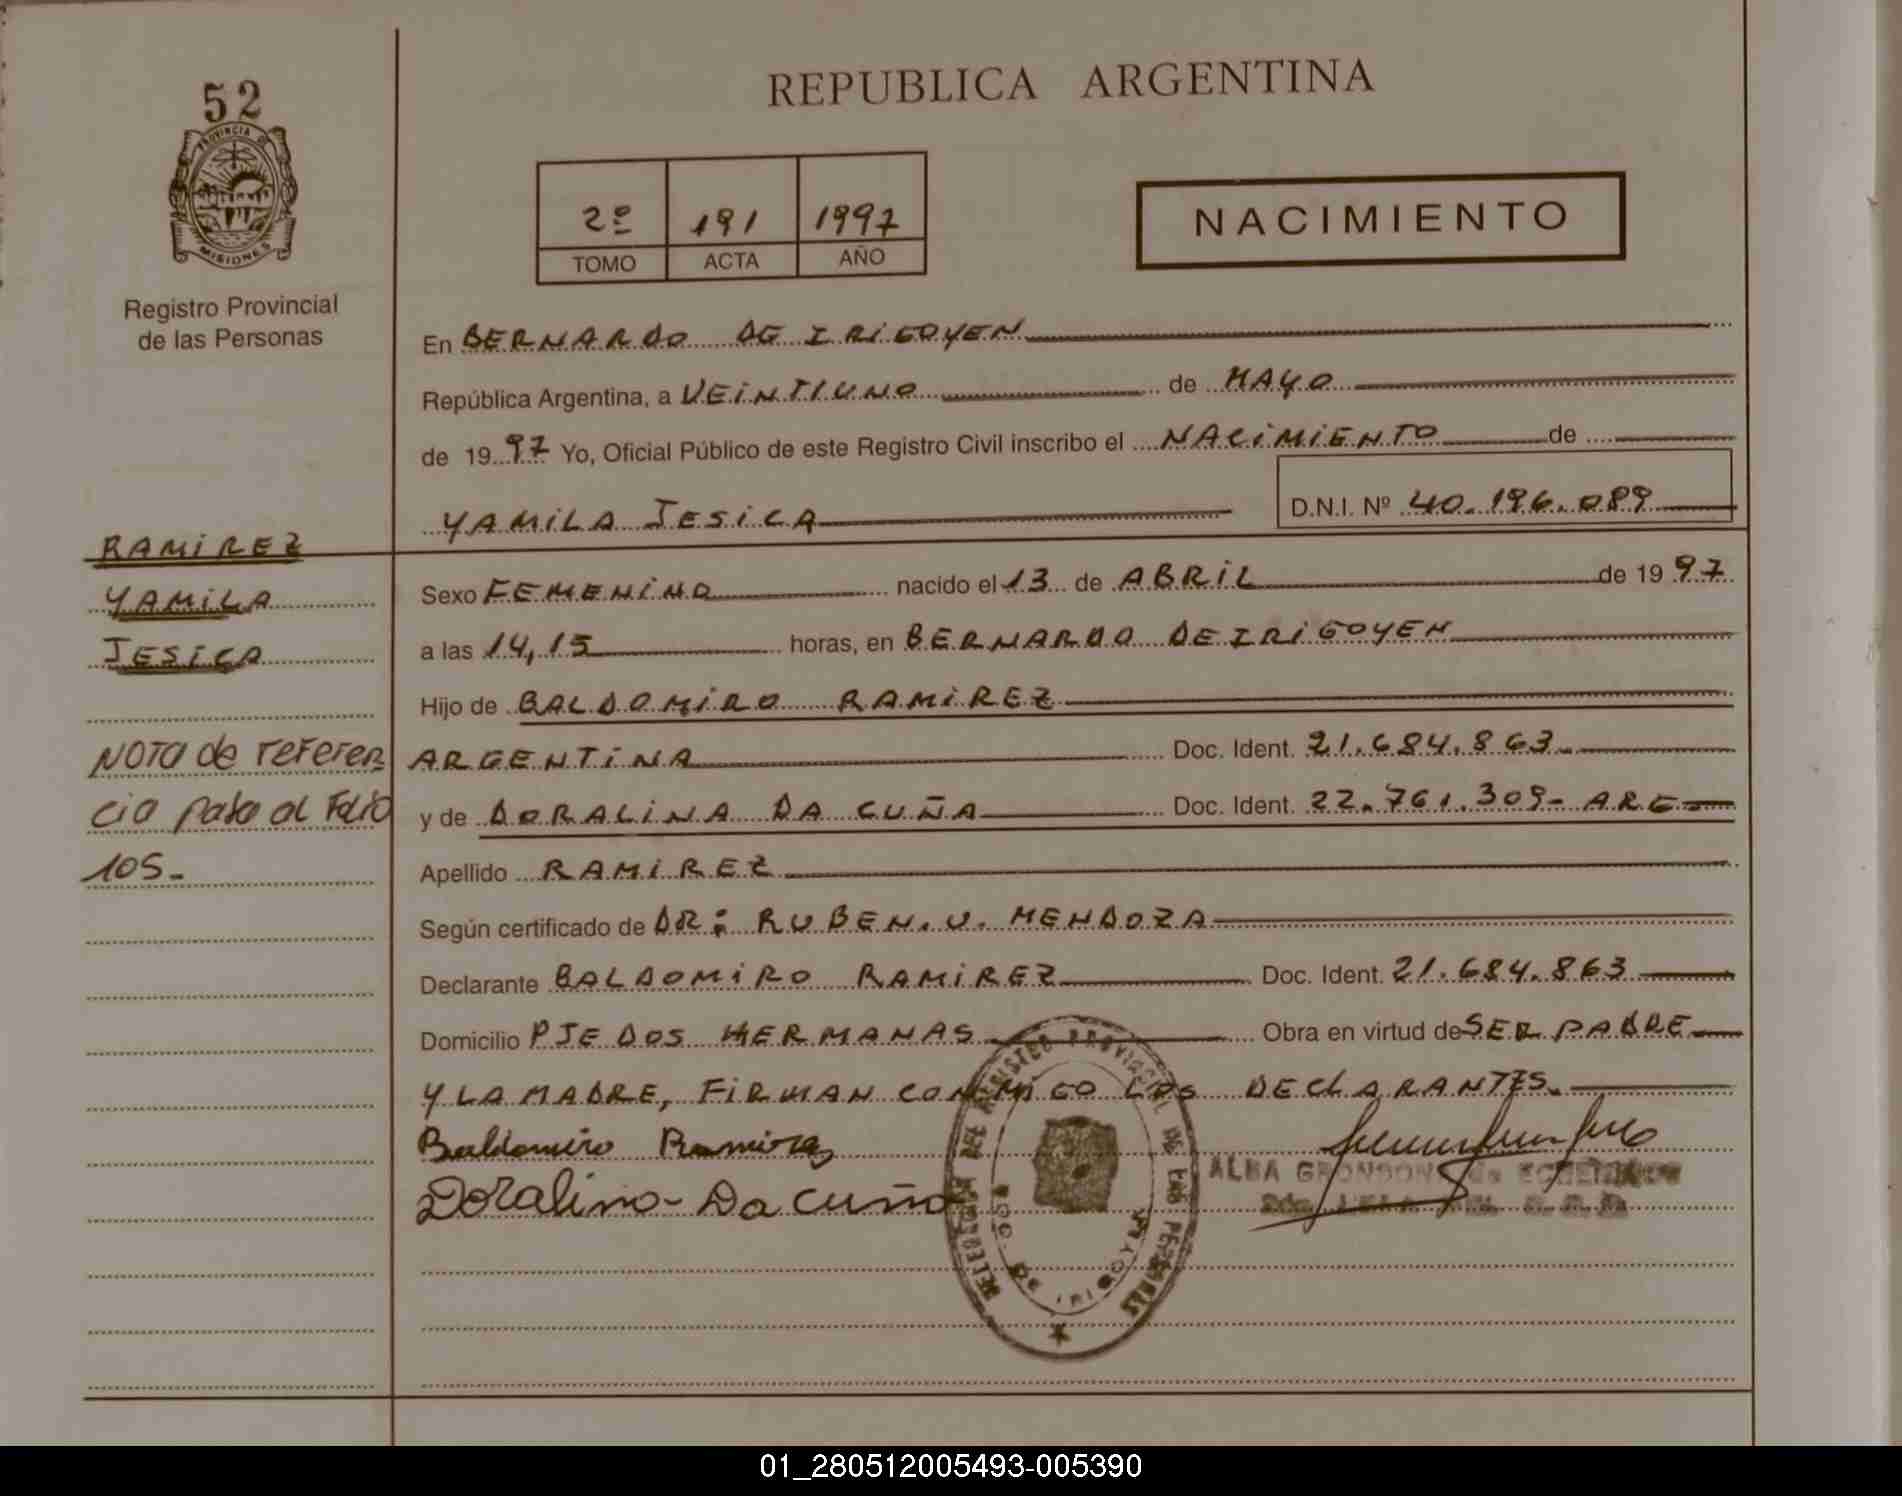 52
PROVINCIA DE
MISIONES
Registro Provincial
de las Personas
REPUBLICA ARGENTINA
2º 191 1997
TOMO ACTA AÑO
NACIMIENTO
En BERNARDO DE IRIGOYEN
República Argentina, a VEINTIUNO de MAYO
de 1997 Yo, Oficial Público de este Registro Civil inscribo el NACIMIENTO de
YAMILA JESICA D.N.I. Nº 40.196.089
RAMIREZ
YAMILA
JESICA
NOTA de referen
cia pasa al Folio
105-
Sexo FEMENINO nacido el 13 de ABRIL de 1997
a las 14,15 horas, en BERNARDO DE IRIGOYEN
Hijo de BALDOMIRO RAMIREZ
ARGENTINA Doc. Ident. 21.684.863
y de DORALINA DA CUÑA Doc. Ident. 22.761.309- ARG
Apellido RAMIREZ
Según certificado de DR: RUBEN.U. MENDOZA
Declarante BALDOMIRO RAMIREZ Doc. Ident. 21.684.863
Domicilio PJE DOS HERMANAS Obra en virtud de SER PADRE
Y LA MADRE, FIRMAN CONMIGO LOS DECLARANTES.
Baldomiro Ramirez
Doralino-Da cuña
ALBA GRONDONA de
DELEGACION DEL REGISTRO PROVINCIAL DE LAS PERSONAS
BDO. DE IRIGOYEN
01_280512005493-005390